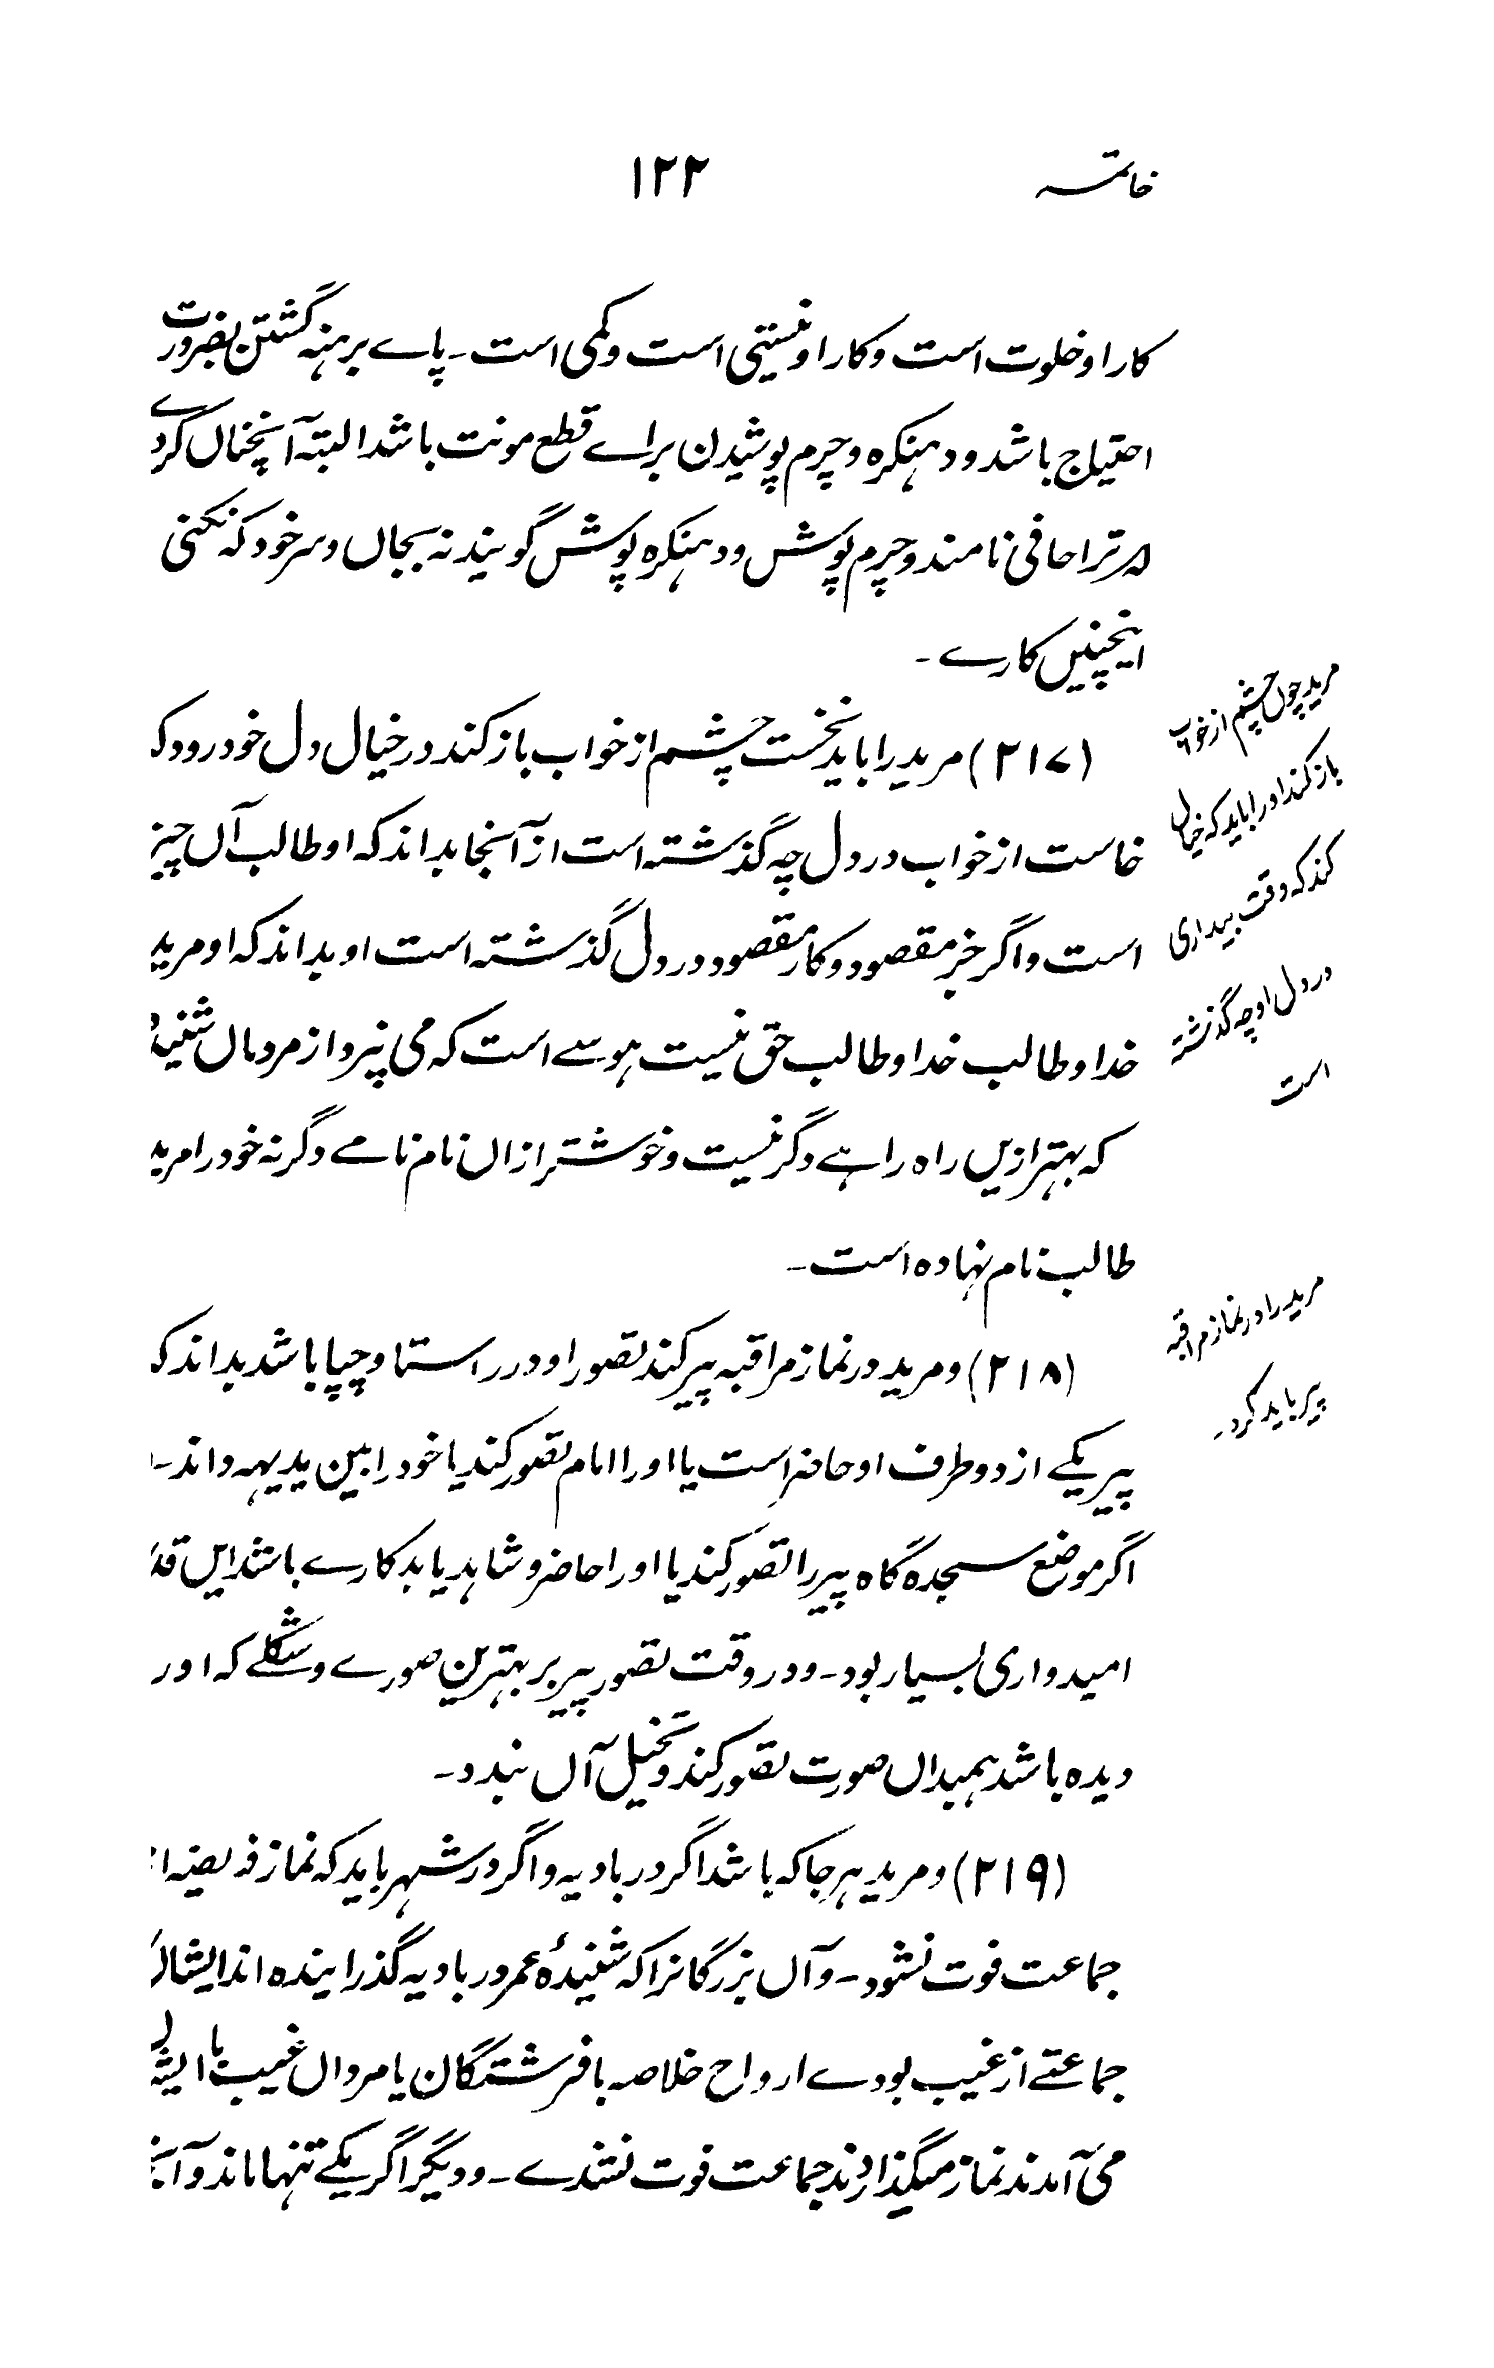 خاتمہ ۱۲۲
کار او خلوت است و کار او نیستی است و کمی است ۔ پاے برہنہ گشتن بضرورت
احتیاج باشد و دہنکرہ و چرم پوشیدن براے قطع مونت باشد البتہ آنچناں گردے
کہ ترا حافی نامند و چرم پوش و دہنکرہ پوش گویند نہ بجاں و سر خود کہ نکنی
اینچنیں کارے ۔
(۲۱۷) مرید را باید نخست چشم از خواب باز کند در خیال دل خود رود کہ
خاست از خواب در دل چہ گذشتہ است از آنجا بداند کہ او طالب آں چیز
است و اگر جز مقصود و کار مقصود در دل گذشتہ است او بداند کہ او مرید
خدا و طالب خدا و طالب حق نیست ہوسے است کہ می پزد از مردماں شنیدہ
کہ بہتر ازیں راہ راہے دگر نیست و خوشتر ازاں نام نامے دگر نہ خود را مرید
طالب نام نہادہ است ۔
مرید چوں چشم از خواب
باز کند او را باید کہ خیال
کند کہ وقت بیداری
در دل او چہ گذشتہ
است
(۲۱۸) و مرید در نماز مراقبہ پیر کند تصور او در راستا و چپا باشد بداند کہ
پیر یکے از دو طرف او حاضر است یا او را امام تصور کند یا خود را بین یدیہہ داند ۔
اگر موضع سجدہ گاہ پیر را تصور کند یا او را حاضر و شاہد یابد کارے باشد ایں قدر
امیدواری بسیار بود ۔ و در وقت تصور پیر بر بہترین صورے و شکلے کہ او را
دیدہ باشد ہمبداں صورت تصور کند و تخیل آں بندد ۔
مرید را در نماز مراقبہ
پیر باید کرد ۔
(۲۱۹) و مرید ہر جا کہ باشد اگر در بادیہ و اگر در شہر باید کہ نماز فریضہ از
جماعت فوت نشود ۔ و آں بزرگانرا کہ شنیدۂ عمر در بادیہ گذرانیدہ اند ایشاں
جماعتے از غیب بودے ارواح خلاصہ با فرشتگان یا مردان غیب با ایشاں
می آمدند نماز میگذاردند جماعت فوت نشدے ۔ و دیگر اگر یکے تنہا ماند و